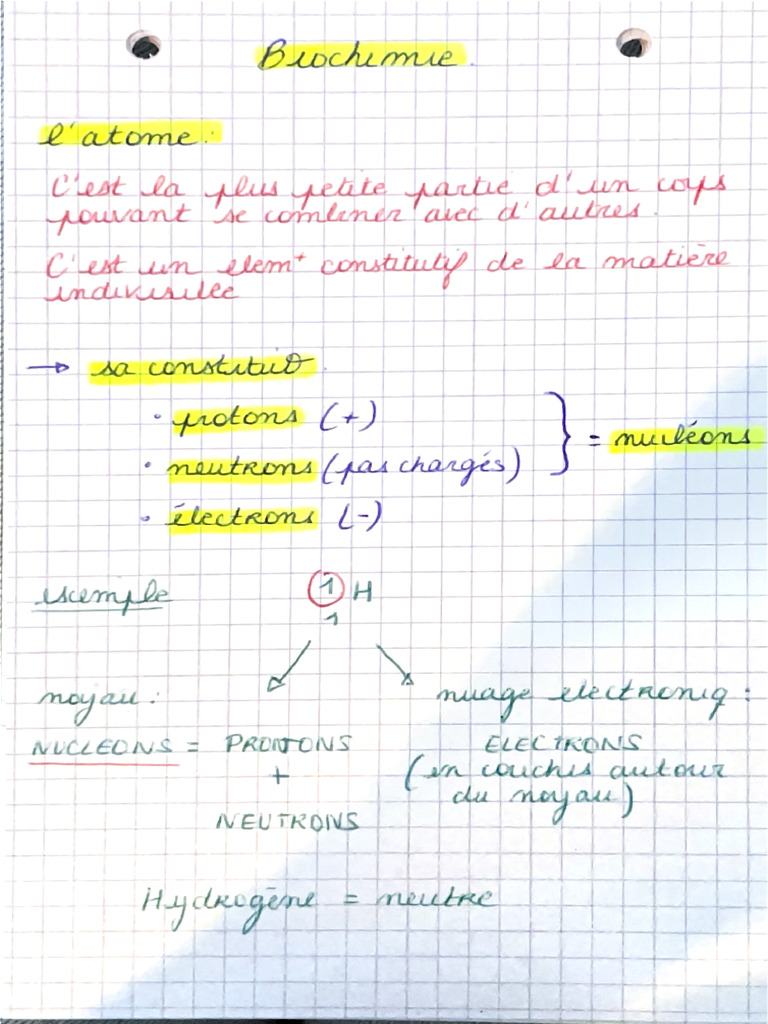 Biochimie.
l'atome:
C'est la plus petite partie d'un corps
pouvant se combiner avec d'autres.
C'est un elem^t constitutif de la matière
indivisible
→ sa constituo
• protons (+)
• neutrons (pas chargés)
} = nucléons
• électrons (-)
exemple
1 H
1
noyau:
nuage electroniq:
NUCLEONS = PROTONS
+
NEUTRONS
ELECTRONS
(en couches autour
du noyau)
Hydrogène = neutre